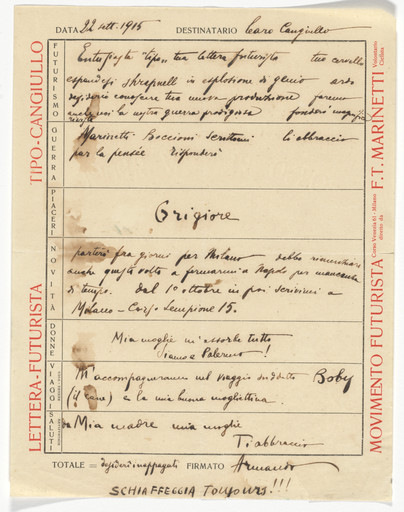 DATA 22 sett. 1915 DESTINATARIO Caro Cangiullo
TIPO-CANGIULLO
LETTERA-FUTURISTA
FUTURISMO
tua lettera futurista tuo cervello
espandesi shrapnell in esplosione di genio ardo
desiderio conoscere tua nuova produzione faremo
anche noi la nostra guerra prodigiosa
GUERRA
Marinetti Boccioni scrittomi ti abbraccio
per la pensée risponderò
PIACERI
Grigiore
NOVITÀ
partirò fra giorni per Milano debbo
anche questa volta a fermarmi a Napoli per mancanza
di tempo. Dal 1º ottobre in poi scrivimi a
Milano - Corso Sempione 15.
DONNE
Mia moglie m'assorbe tutto
siamo a Palermo!
VIAGGI
M'accompagneranno nel viaggio suddetto Boby
(il cane) e la mia buona mogliettina.
SALUTI
da Mia madre mia moglie
Ti abbraccio
TOTALE = desideri inappagati FIRMATO Armando
SCHIAFFEGGIA TOUJOURS!!!
MOVIMENTO FUTURISTA
diretto da F. T. MARINETTI
Corso Venezia 61 - Milano
Volontario
Ciclista